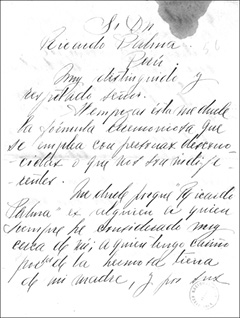 Sr Dn
Ricardo Palma.
Perú.
Muy distinguido y
respetado señor:
Al empezar esta me duele
la fórmula ceremoniosa que
se emplea con personas descono-
cidas o que nos son indife-
rentes.
Me duele porque "Ricardo
Palma" es alguien a quien
siempre he considerado muy
cerca de mí, a quien tengo cariño
por de la hermosa tierra
de mi madre, y por sus